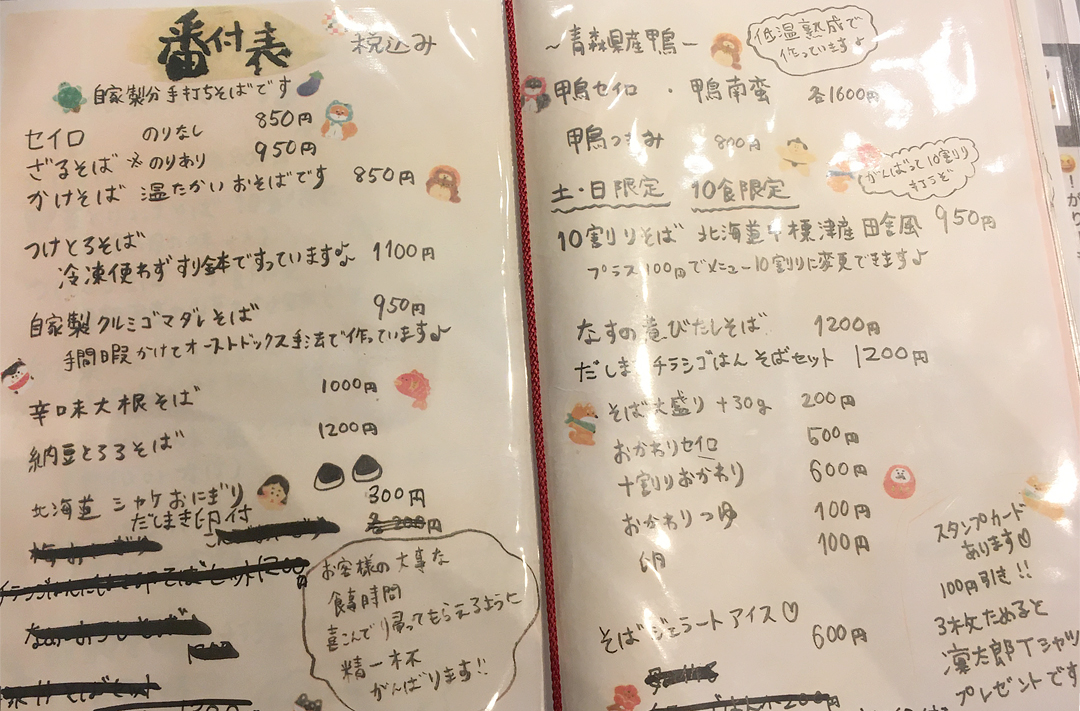 番付表 税込み
自家製粉手打ちそばです
セイロ のりなし 850円
ざるそば ※のりあり 950円
かけそば 温たかいおそばです 850円
つけとろそば 1100円
冷凍使わずすり金本ですっています♪
自家製クルミゴマダレそば 950円
手間日暇かけてオーストドックス手法で作っています♪
辛口味大根そば 1000円
納豆とろろそば 1200円
北海道 シャケおにぎり 300円
だしまき卵付 各200円
お客様の大事な
食事時間
喜こんで帰ってもらえるように
精一杯
がんばります!!
~青森県産鴨~
低温熟成で
作っています♪
鴨セイロ ・ 鴨南蛮 各1600円
鴨つまみ 800円
がんばって10割り
打うぞ
土・日限定 10食限定
10割りそば 北海道中標津産田舎風 950円
プラス100円でメニュー10割りに変更できます♪
なすの煮びたしそば 1200円
だしまきチラシごはん そばセット 1200円
そば大盛り +30g 200円
おかわりセイロ 500円
十割りおかわり 600円
おかわりつゆ 100円
卵 100円
そばジェラートアイス♡ 600円
スタンプカード
あります♡
100円引き!!
3枚ためると
凜太郎Tシャツ
プレゼントです